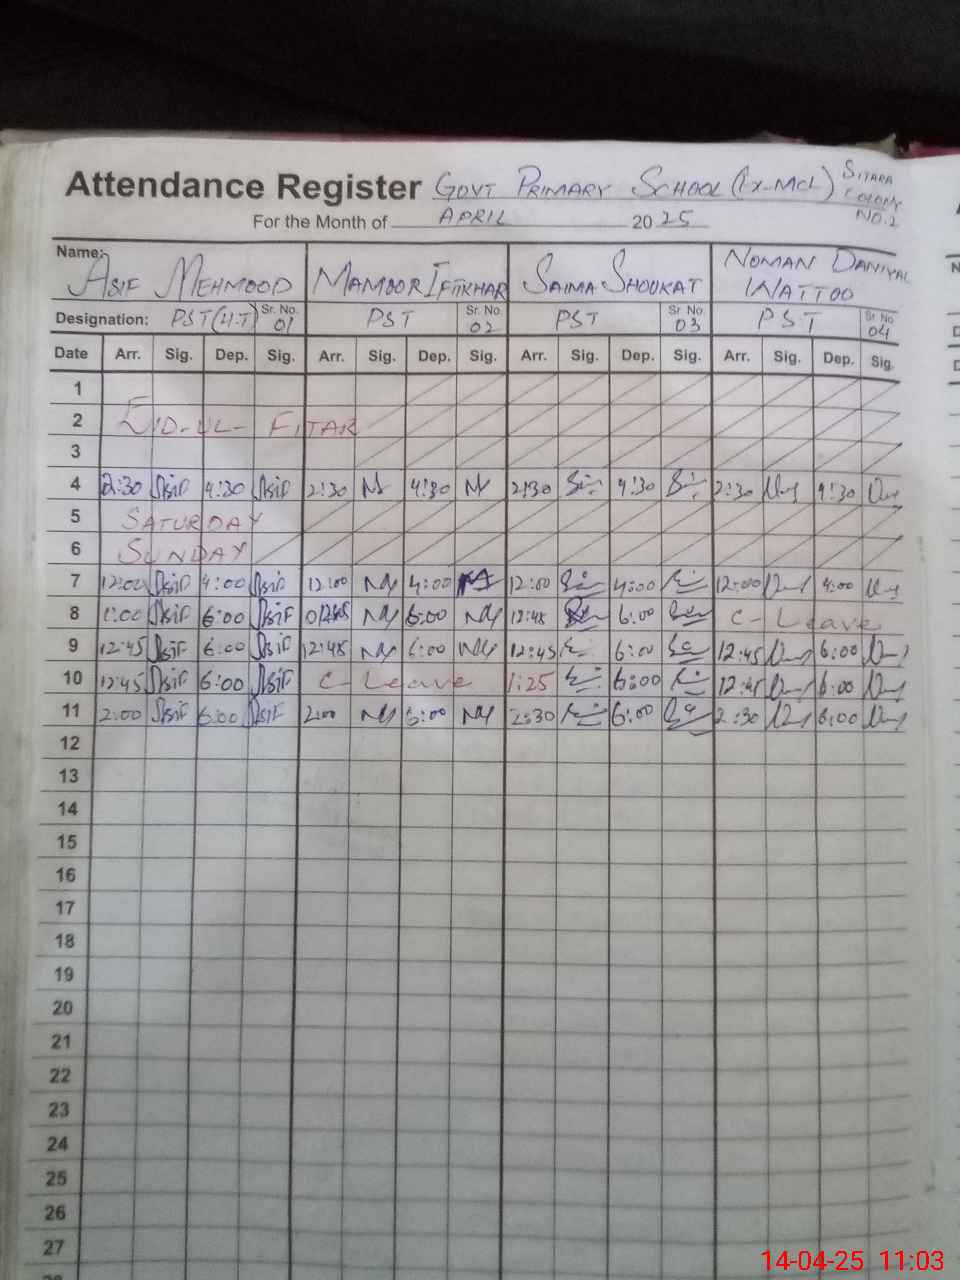 Attendance Register GOVT PRIMARY SCHOOL (Ex-MCL) SITARA COLONY NO.2
For the Month of APRIL 2025
Name: ASIF MEHMOOD MAMOOR IFTIKHAR SAIMA SHOUKAT NOMAN DANIYAL WATTOO
Designation: PST(H.T) Sr. No. 01 PST Sr. No. 02 PST Sr. No. 03 PST Sr. No. 04
Date Arr. Sig. Dep. Sig. Arr. Sig. Dep. Sig. Arr. Sig. Dep. Sig. Arr. Sig. Dep. Sig.
1
2 EID-UL-FITAR
3
4 2:30 Asif 4:30 Asif 2:30 4:30 2:30 4:30 2:30 4:30
5 SATURDAY
6 SUNDAY
7 12:00 Asif 4:00 Asif 12:00 4:00 12:00 4:00 12:00 4:00
8 1:00 Asif 6:00 Asif 6:00 12:45 6:00 C-Leave
9 12:45 Asif 6:00 Asif 12:45 6:00 12:45 6:00 12:45 6:00
10 12:45 Asif 6:00 Asif C-Leave 1:25 6:00 12:45 6:00
11 2:00 Asif 6:00 Asif 2:00 6:00 2:30 6:00 2:30 6:00
12
13
14
15
16
17
18
19
20
21
22
23
24
25
26
27
14-04-25 11:03